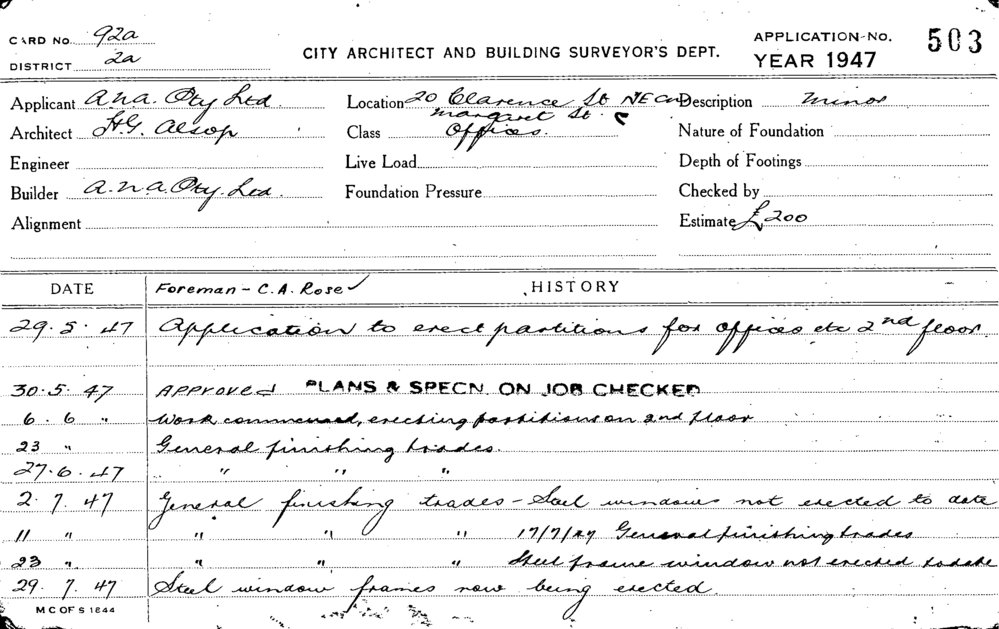 CARD No. 92a
DISTRICT 2a
CITY ARCHITECT AND BUILDING SURVEYOR'S DEPT.
APPLICATION No. 503
YEAR 1947
Applicant A.N.A. Pty Ltd
Architect H.G. Alsop
Engineer
Builder A.N.A. Pty. Ltd.
Alignment
Location 20 Clarence St NE Cnr
Margaret St.
Class Offices.
Live Load
Foundation Pressure
Description Minor
Nature of Foundation
Depth of Footings
Checked by
Estimate £200
DATE Foreman - C.A. Rose ✓ HISTORY
29.5.47 Application to erect partitions for offices etc 2nd floor
30.5.47 APPROVED PLANS & SPECN. ON JOB CHECKED
6.6 " Work commenced, erecting partitions on 2nd floor
23 " General finishing trades.
27.6.47 " " "
2.7.47 General finishing trades - Steel windows not erected to date
11 " " " " 17/7/47 General finishing trades
23 " " " " Steel frame window not erected to date
29.7.47 Steel window frames now being erected.
M C OF S 1844